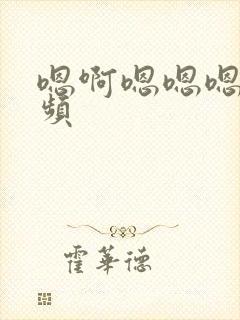 嗯啊嗯嗯嗯
頻
霍華德